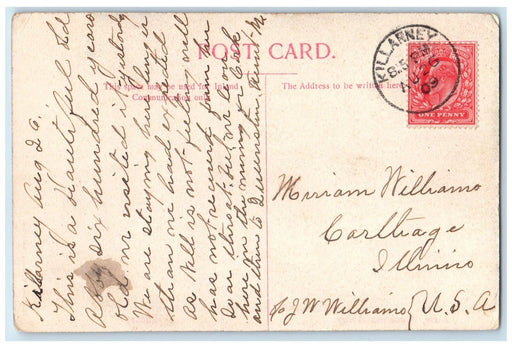 POST CARD.
This space may be used for Inland
Communication only.
The Address to be written here.
KILLARNEY
09
ONE PENNY
Killarney Aug 26.
This is a beautiful old
Abby six hundred years
old. we visited it yesterday
We are staying here longer
than we had expected
as Will is not feeling well
has not recovered from
our but we leave
here in the morning for Cork
and then to Queenstown.
Miriam Williams
Carthage
Illinois
c/o J W Williams U.S.A